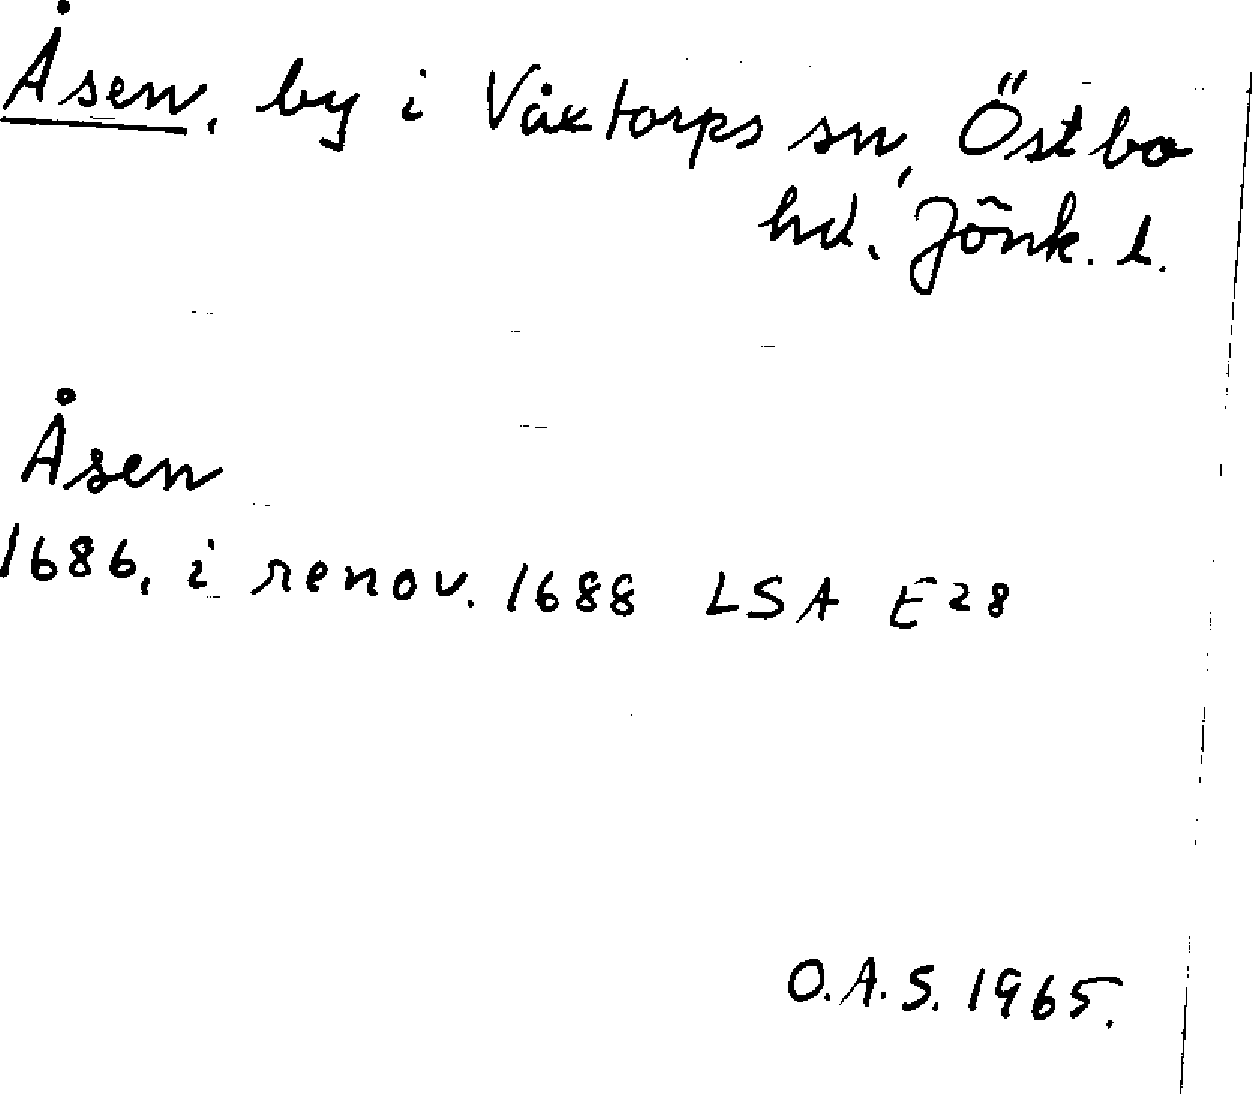 Åsen, by i Våxtorps sn, Östbo
hd. Jönk. l.
Åsen
1686, i renov. 1688 LSA E28
O.A.S. 1965.